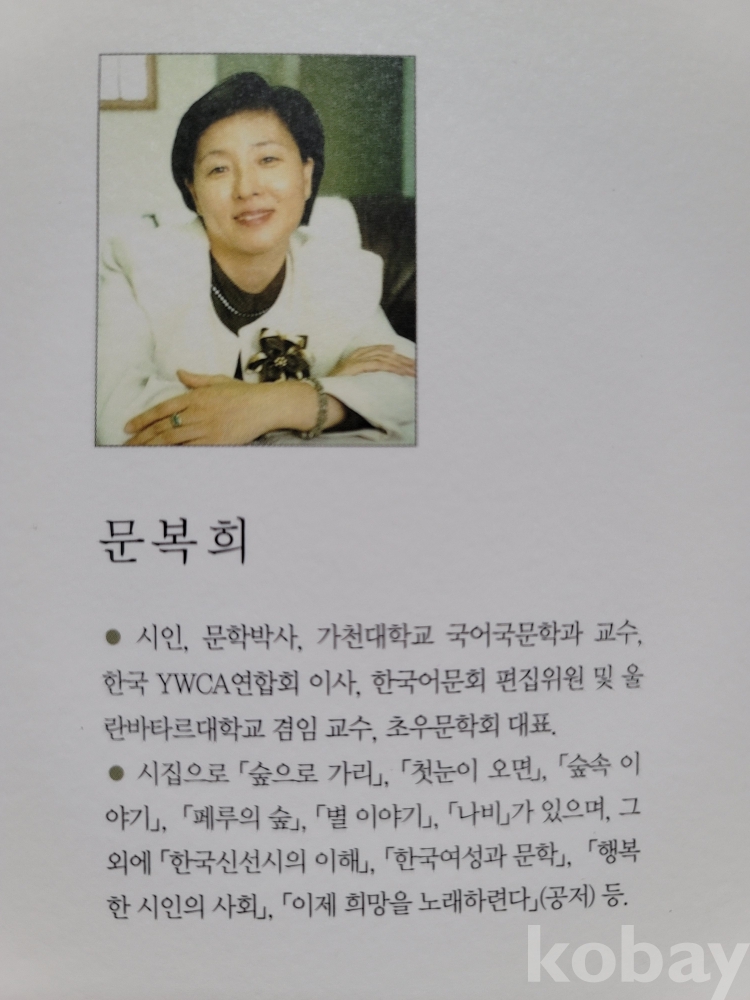 문복희
● 시인, 문학박사, 가천대학교 국어국문학과 교수,
한국 YWCA연합회 이사, 한국어문회 편집위원 및 울
란바타르대학교 겸임 교수, 초우문학회 대표.
● 시집으로 「숲으로 가리」, 「첫눈이 오면」, 「숲속 이
야기」, 「페루의 숲」, 「별 이야기」, 「나비」가 있으며, 그
외에 「한국신선시의 이해」, 「한국여성과 문학」, 「행복
한 시인의 사회」, 「이제 희망을 노래하련다」(공저) 등.
kobay